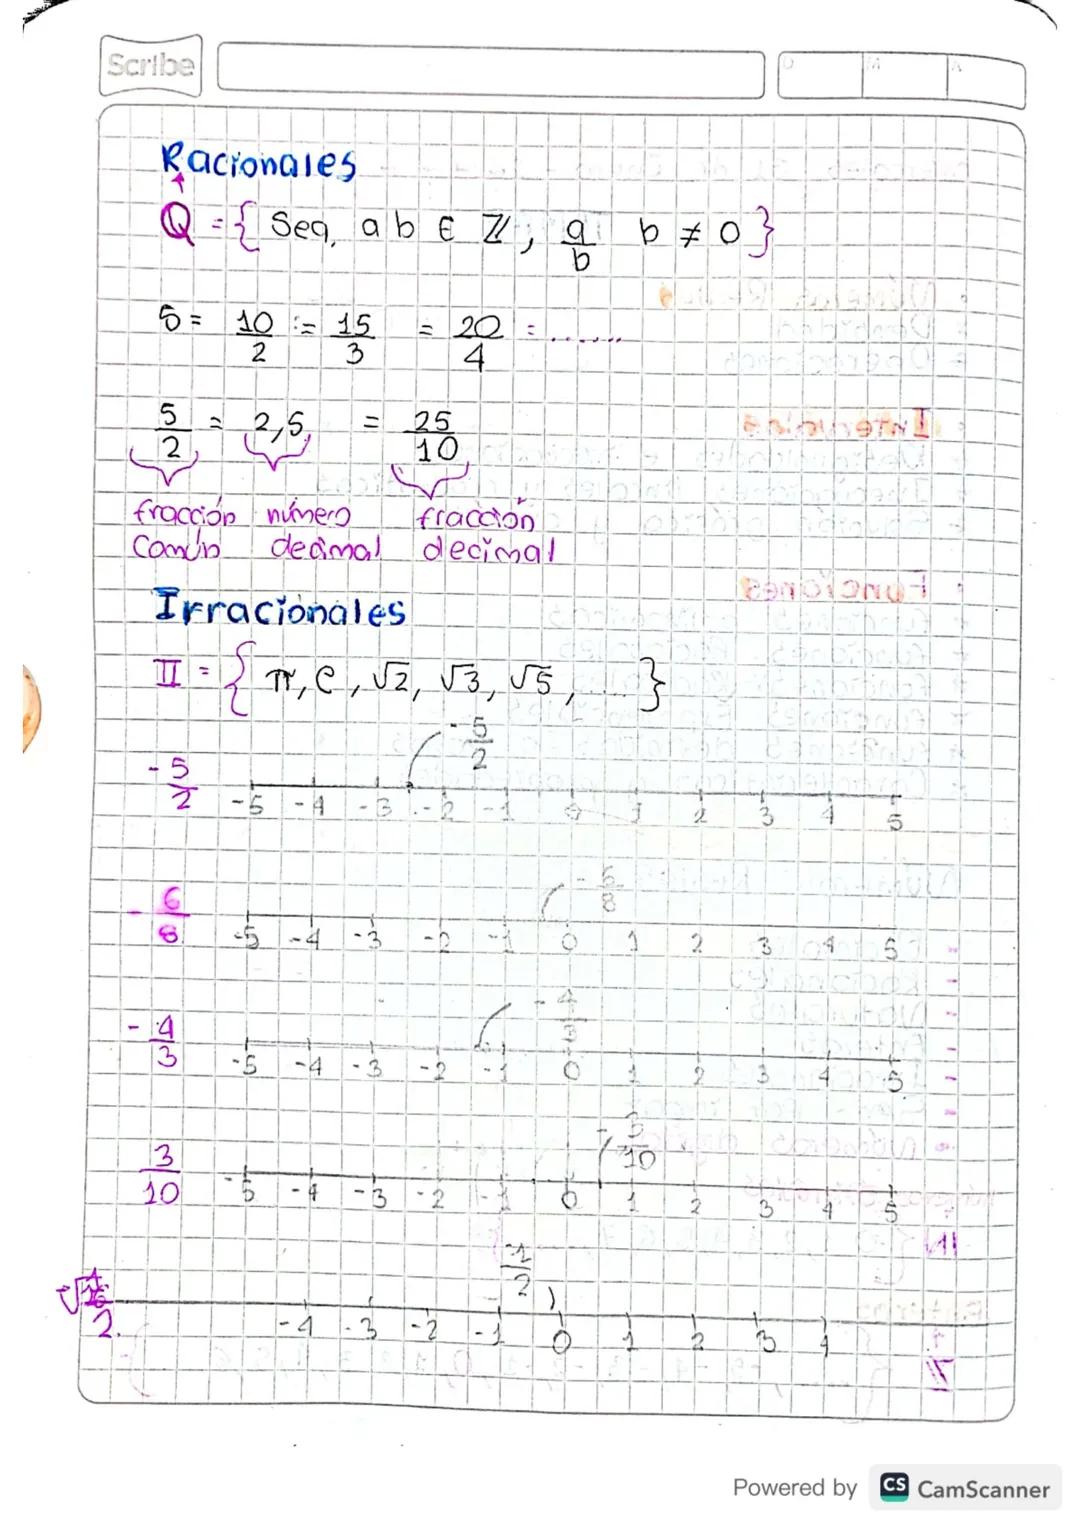 Scribe
D M A
Racionales
Q = { Sea, a b ∈ ℤ, a/b b ≠ 0 }
5 = 10/2 = 15/3 = 20/4 = .......
5/2 = 2,5 = 25/10
fracción número fracción
Común decimal decimal
Irracionales
II = { π, e, √2, √3, √5, ..... }
-5/2
-5/2 -5 -4 -3 -2 -1 0 1 2 3 4 5
-6/8
-6/8 -5 -4 -3 -2 -1 0 1 2 3 4 5
-4/3
-4/3 -5 -4 -3 -2 -1 0 1 2 3 4 5
3/10
3/10 -5 -4 -3 -2 -1 0 1 2 3 4 5
-1/2
2. -4 -3 -2 -1 0 1 2 3 4
Powered by CS CamScanner